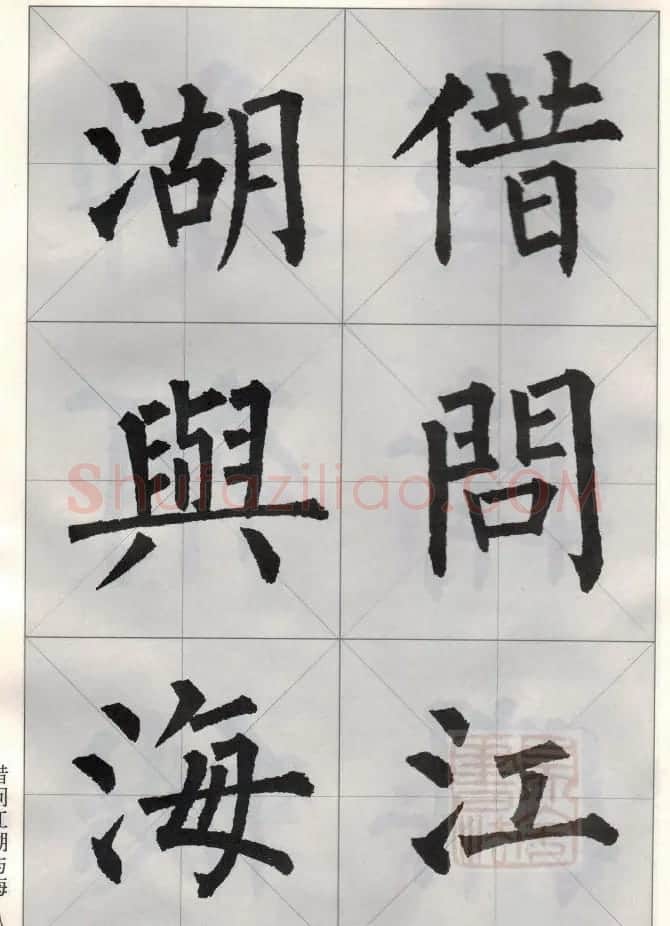 借問江
湖與海
借问江湖与海
Shufaziliao.COM